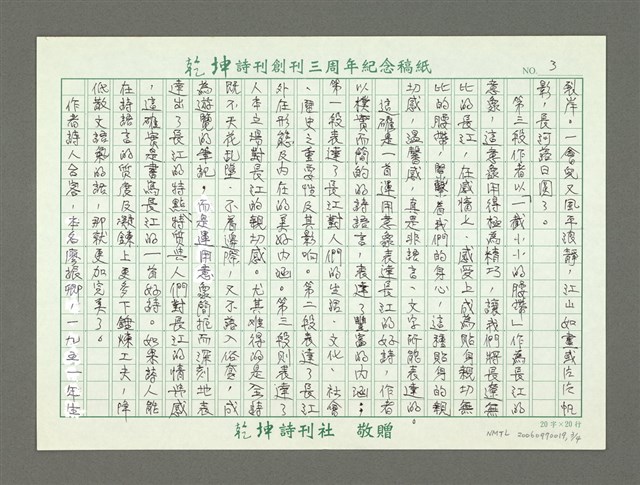 乾坤詩刊創刊三周年紀念稿紙
NO. 3
教岸。一會兒又風平浪靜，江山如畫或片片帆
影，長河落日圓了。
第三段作者以「一截小小的腰帶」作為長江的
意象，這意象用得極為精巧，讓我們將長遠無
比的長江，在感情上、感受上成為貼身親切無
比的腰帶，緊繫着我們的身心，這種貼身的
切感，溫馨感，真是非語言、文字所能表達的。
這確是一首運用意象表達長江的好詩，作者
以樸實而簡約的詩語言，表達了豐富的內涵：
第一段表達了長江對人們的生活、文化、社會
、歷史之重要性及其影响。第二段表達了長江
外在形態及內在的美好內涵。第三段則表達了
人本立場對長江的親切感。尤其难得的是全詩
既不天花乱墜、不着邊際，又不落入俗套，成
為遊覽的筆記，而是運用意象簡扼而深刻地表
達出了長江的特點特質與人們對長江的情怀感
，這確實是書寫長江的一首好詩。如果詩人能
在詩語言的質度及凝鍊上更多下鍾煉工夫，降
低散文語氣的話，那就更加完美了。
作者詩人台客，本名廖振卿，一九五一年生
20字×20行
乾坤詩刊社　敬贈
NMTL 20060990019, 3/4